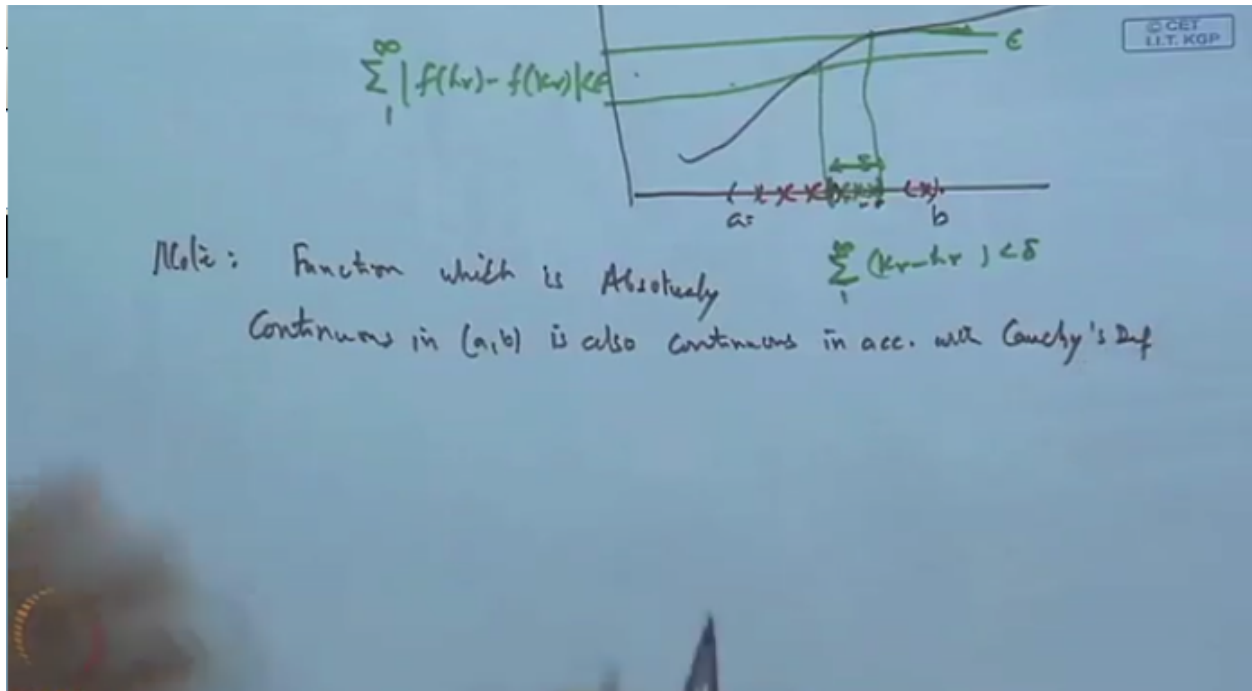 © CET
I.I.T. KGP
∞
∑ | f(hr) - f(kr) | < ε
1
ε
δ
a=
b
∞
∑ (kr - hr) < δ
1
Note: Function which is Absolutely
Continuous in (a,b) is also continuous in acc. with Cauchy's Def